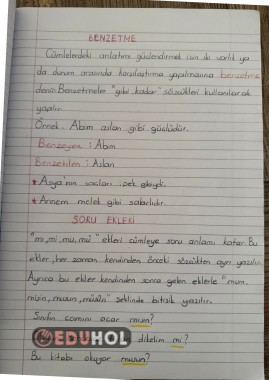 BENZETME
Cümlelerdeki anlatımı güçlendirmek için iki varlık ya
da durum arasında karşılaştırma yapılmasına benzetme
denir. Benzetmeler "gibi, kadar" sözcükleri kullanılarak
yapılır.
Örnek: Abim aslan gibi güçlüdür.
Benzeyen: Abim
Benzetilen: Aslan
* Asya'nın saçları ipek gibiydi.
* Annem melek gibi sabırlıdır.
SORU EKLERİ
"mı, mi, mu, mü" ekleri cümleye soru anlamı katar. Bu
ekler, her zaman kendinden önceki sözcükten ayrı yazılır.
Ayrıca bu ekler kendinden sonra gelen eklerle "mısın,
misin, musun, müsün" şeklinde bitişik yazılır.
Sınıfın camını açar mısın?
EDUHOL dikelim mi?
Bu kitabı okuyor musun?